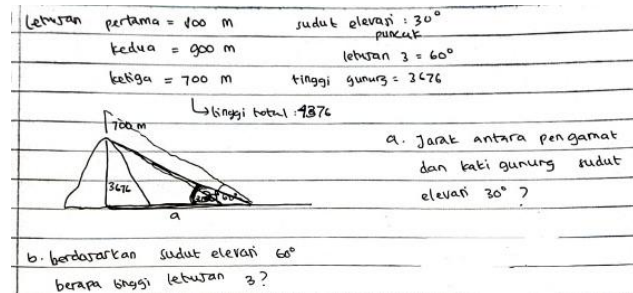 Letusan pertama = 800 m sudut elevasi : 30°
puncak
kedua = 900 m letusan 3 = 60°
ketiga = 700 m tinggi gunung = 3676
↳ tinggi total : 4376
700 m
a. Jarak antara pengamat
dan kaki gunung sudut
elevasi 30° ?
3676
60°
a
b. berdasarkan sudut elevasi 60°
berapa tinggi letusan 3 ?